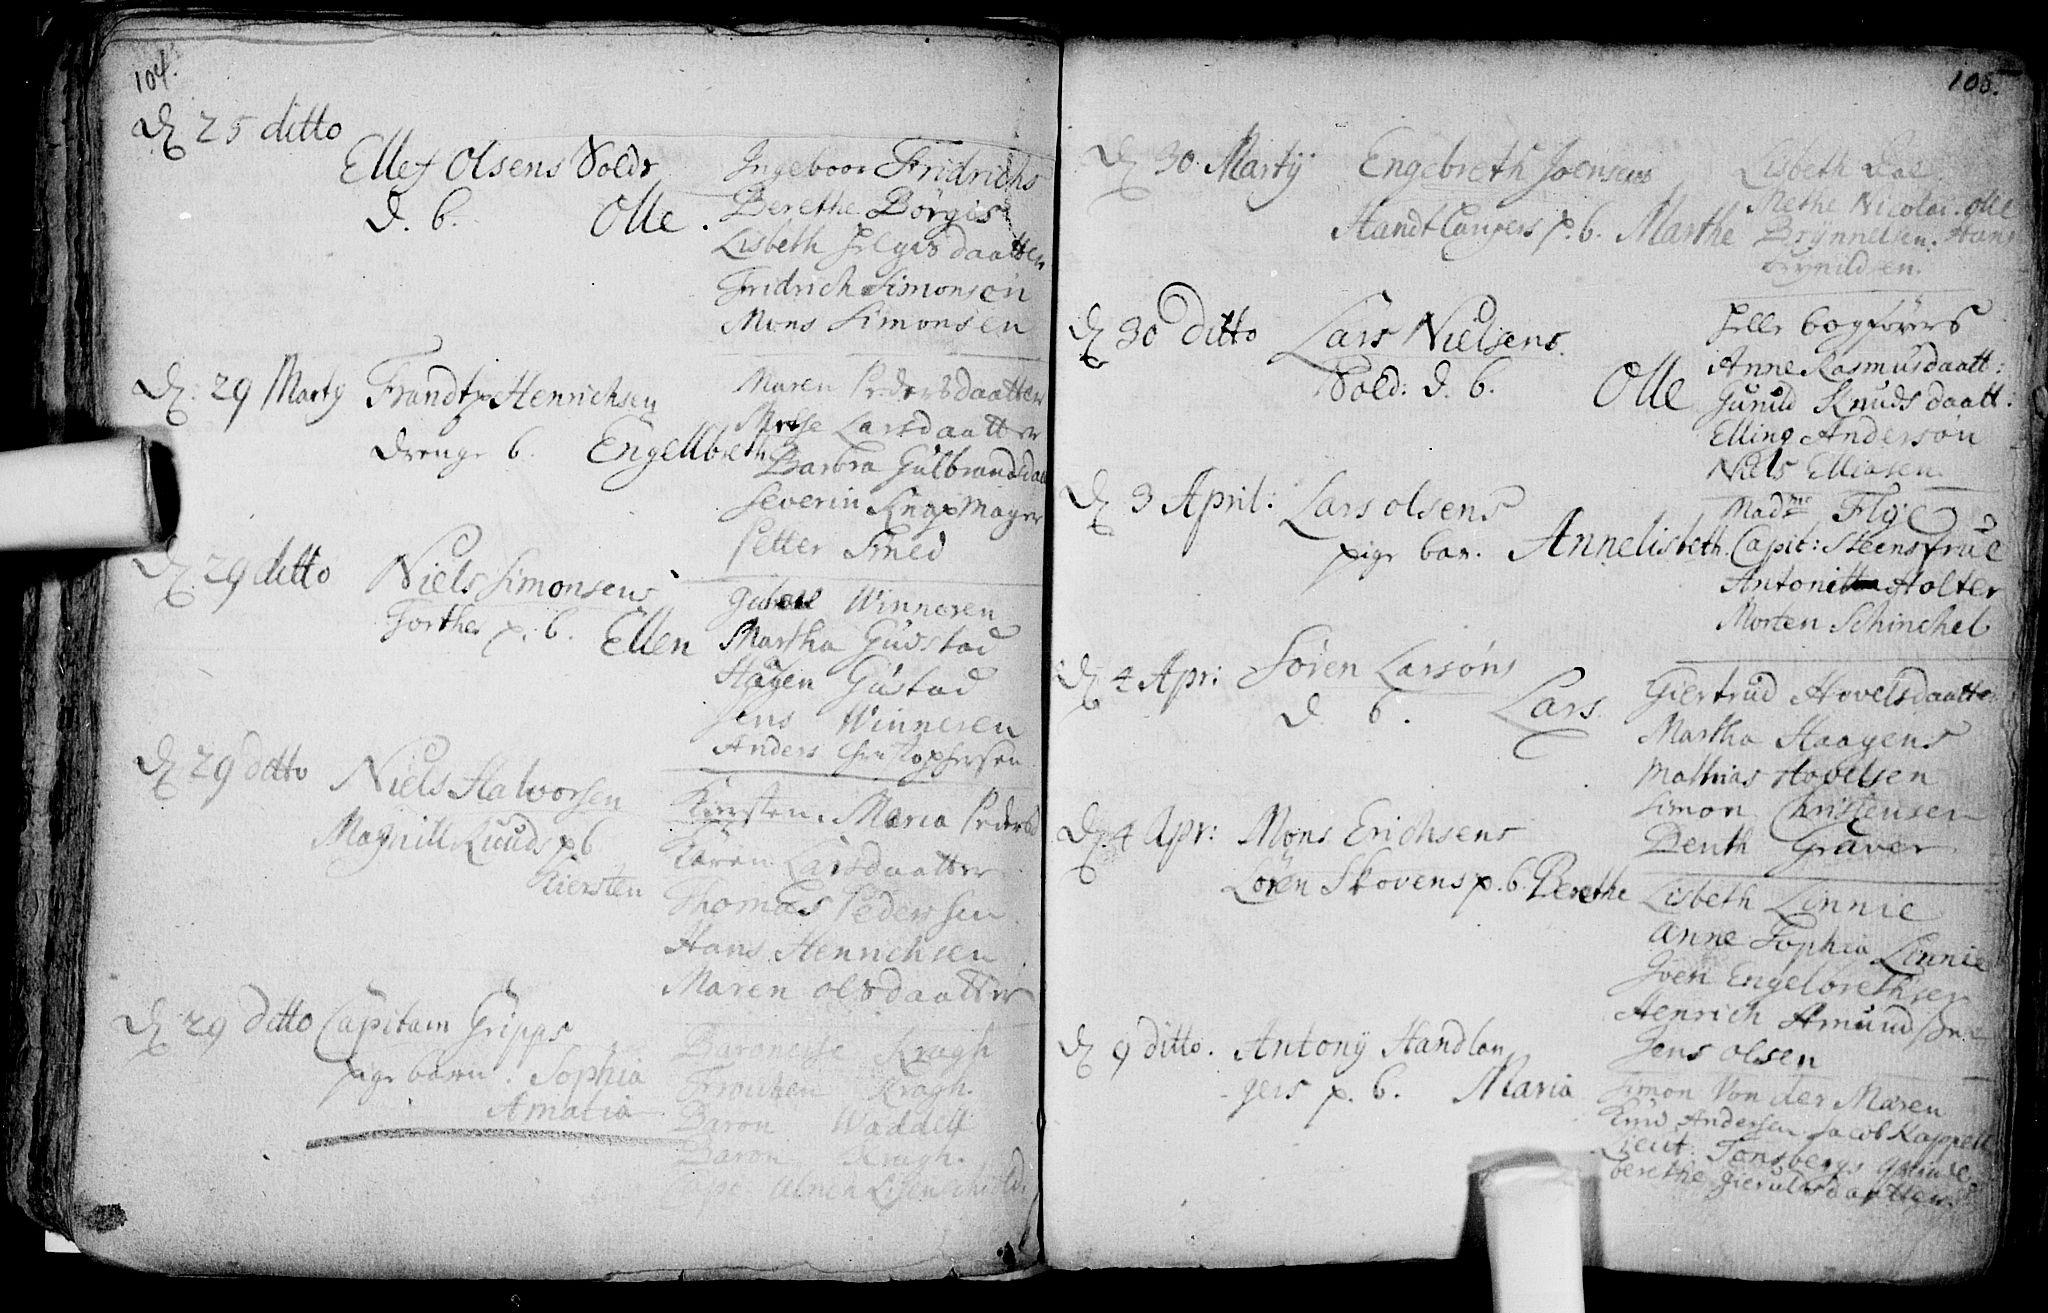 104.
D 25 ditto
Ellef Olsens Soldr
d. b. Olle.
Ingeboor Fridrichs
Berethe Börgis
Lisbeth Helgisdaatter
Fridrich Simonsen
Mons Simonsen
D: 29 Marty Frandtz Henrichsen
drenge b. Engellbreth
Maren Pedersdaatter
Larsdaatter
Barbra Gulbrandsdaa
Severin Knapmager
Petter Smed
D 29 ditto Niels Simonsens
p. b. Ellen
Winneren
Martha Gudstad
Haagen Gustad
Jens Winneren
Anders Christophersen
D 29 ditto Niels Halvorsen
Magnill Ruuds p b
Kiersten
Kirsten Maria Peders
Karen Larsdaatter
Thomas Pedersen
Hans Henrichsen
Maren olsdaatter
D 29 ditto Capitain Gripps
pige barn. Sophia
Amalia
Baronesse Kragh
Frouhen Kragh.
Baron Waddell
Baron Kragh.
105.
D 30 Martij Engebreth Joensens
Handtlangers p. b. Marthe
Lisbeth Dal
Methe Nicolai. olle
Brynnelsen. Hans
brynildsen.
D 30 Ditto Lars Nielsens.
Sold: d. b. Olle
Helle bogförers
Anne Rasmusdaatt:
Gunild Knudsdaatt.
Elling Anderson
Niels Elliasen
D 3 April: Lars olsens
pige bar. Annelisbeth.
Madme Flye
Capit: Steens frue
Holter
Morten Schinchel
D 4 Apr: Sören Larsöns
d b. Lars.
Giertrud Hovelsdaatter
Martha Haagens
Mathias Hovelsen
Simon Christensen
Benth Graver
D. 4 Apr: Mons Erichsens
Skovens p. b. Berethe
Lisbeth Linnie
Anne Sophia Linnie
Joen Engelbrethsen
Henrich Amundsen
Jens olsen
D 9 ditto. Antonÿ Handlan
gers p. b. Maria
Simon Von der Maren
Knud Andersen Jacob Kappell
Lieut. Tonsbergs
berethe daatter.